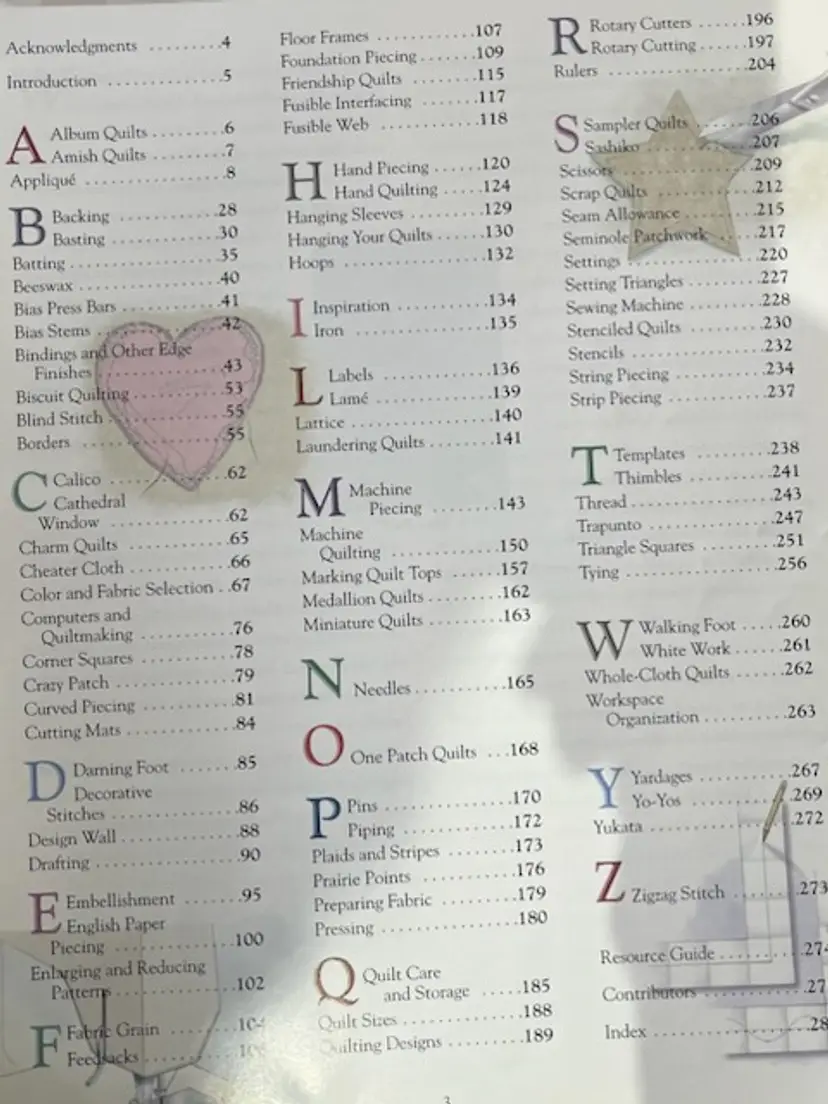 Acknowledgments .........4
Introduction ............5
A Album Quilts .........6
Amish Quilts .........7
Appliqué ...............8
B Backing ............28
Basting ............30
Batting ................35
Beeswax ................40
Bias Press Bars ..........41
Bias Stems .............42
Bindings and Other Edge
Finishes ...............43
Biscuit Quilting ..........53
Blind Stitch .............55
Borders ................55
C Calico .............62
Cathedral
Window ..............62
Charm Quilts ............65
Cheater Cloth ...........66
Color and Fabric Selection ..67
Computers and
Quiltmaking ............76
Corner Squares ..........78
Crazy Patch .............79
Curved Piecing ..........81
Cutting Mats ............84
D Darning Foot .......85
Decorative
Stitches ...............86
Design Wall .............88
Drafting ................90
E Embellishment .......95
English Paper
Piecing ...............100
Enlarging and Reducing
Patterns ..............102
F Fabric Grain
Feedsacks
Floor Frames ............107
Foundation Piecing .......109
Friendship Quilts ........115
Fusible Interfacing .......117
Fusible Web ............118
H Hand Piecing ......120
Hand Quilting .....124
Hanging Sleeves .........129
Hanging Your Quilts ......130
Hoops .................132
I Inspiration .........134
Iron ..............135
L Labels ............136
Lamé .............139
Lattice .................140
Laundering Quilts ........141
M Machine
Piecing ..........143
Machine
Quilting .............150
Marking Quilt Tops ......157
Medallion Quilts .........162
Miniature Quilts .........163
N Needles ...........165
O One Patch Quilts ...168
P Pins ..............170
Piping ............172
Plaids and Stripes ........173
Prairie Points ...........176
Preparing Fabric .........179
Pressing ................180
Q Quilt Care
and Storage .....185
Quilt Sizes .............188
Quilting Designs .........189
R Rotary Cutters ......196
Rotary Cutting .....197
Rulers .................204
S Sampler Quilts ......206
Sashiko ...........207
Scissors ................209
Scrap Quilts ............212
Seam Allowance .........215
Seminole Patchwork .....217
Settings ...............220
Setting Triangles ........227
Sewing Machine .........228
Stenciled Quilts .........230
Stencils ................232
String Piecing ...........234
Strip Piecing ............237
T Templates .........238
Thimbles .........241
Thread .................243
Trapunto ...............247
Triangle Squares .........251
Tying ..................256
W Walking Foot .....260
White Work ......261
Whole-Cloth Quilts ......262
Workspace
Organization ..........263
Y Yardages ..........267
Yo-Yos ............269
Yukata .................272
Z Zigzag Stitch .......273
Resource Guide
Contributors
Index
3